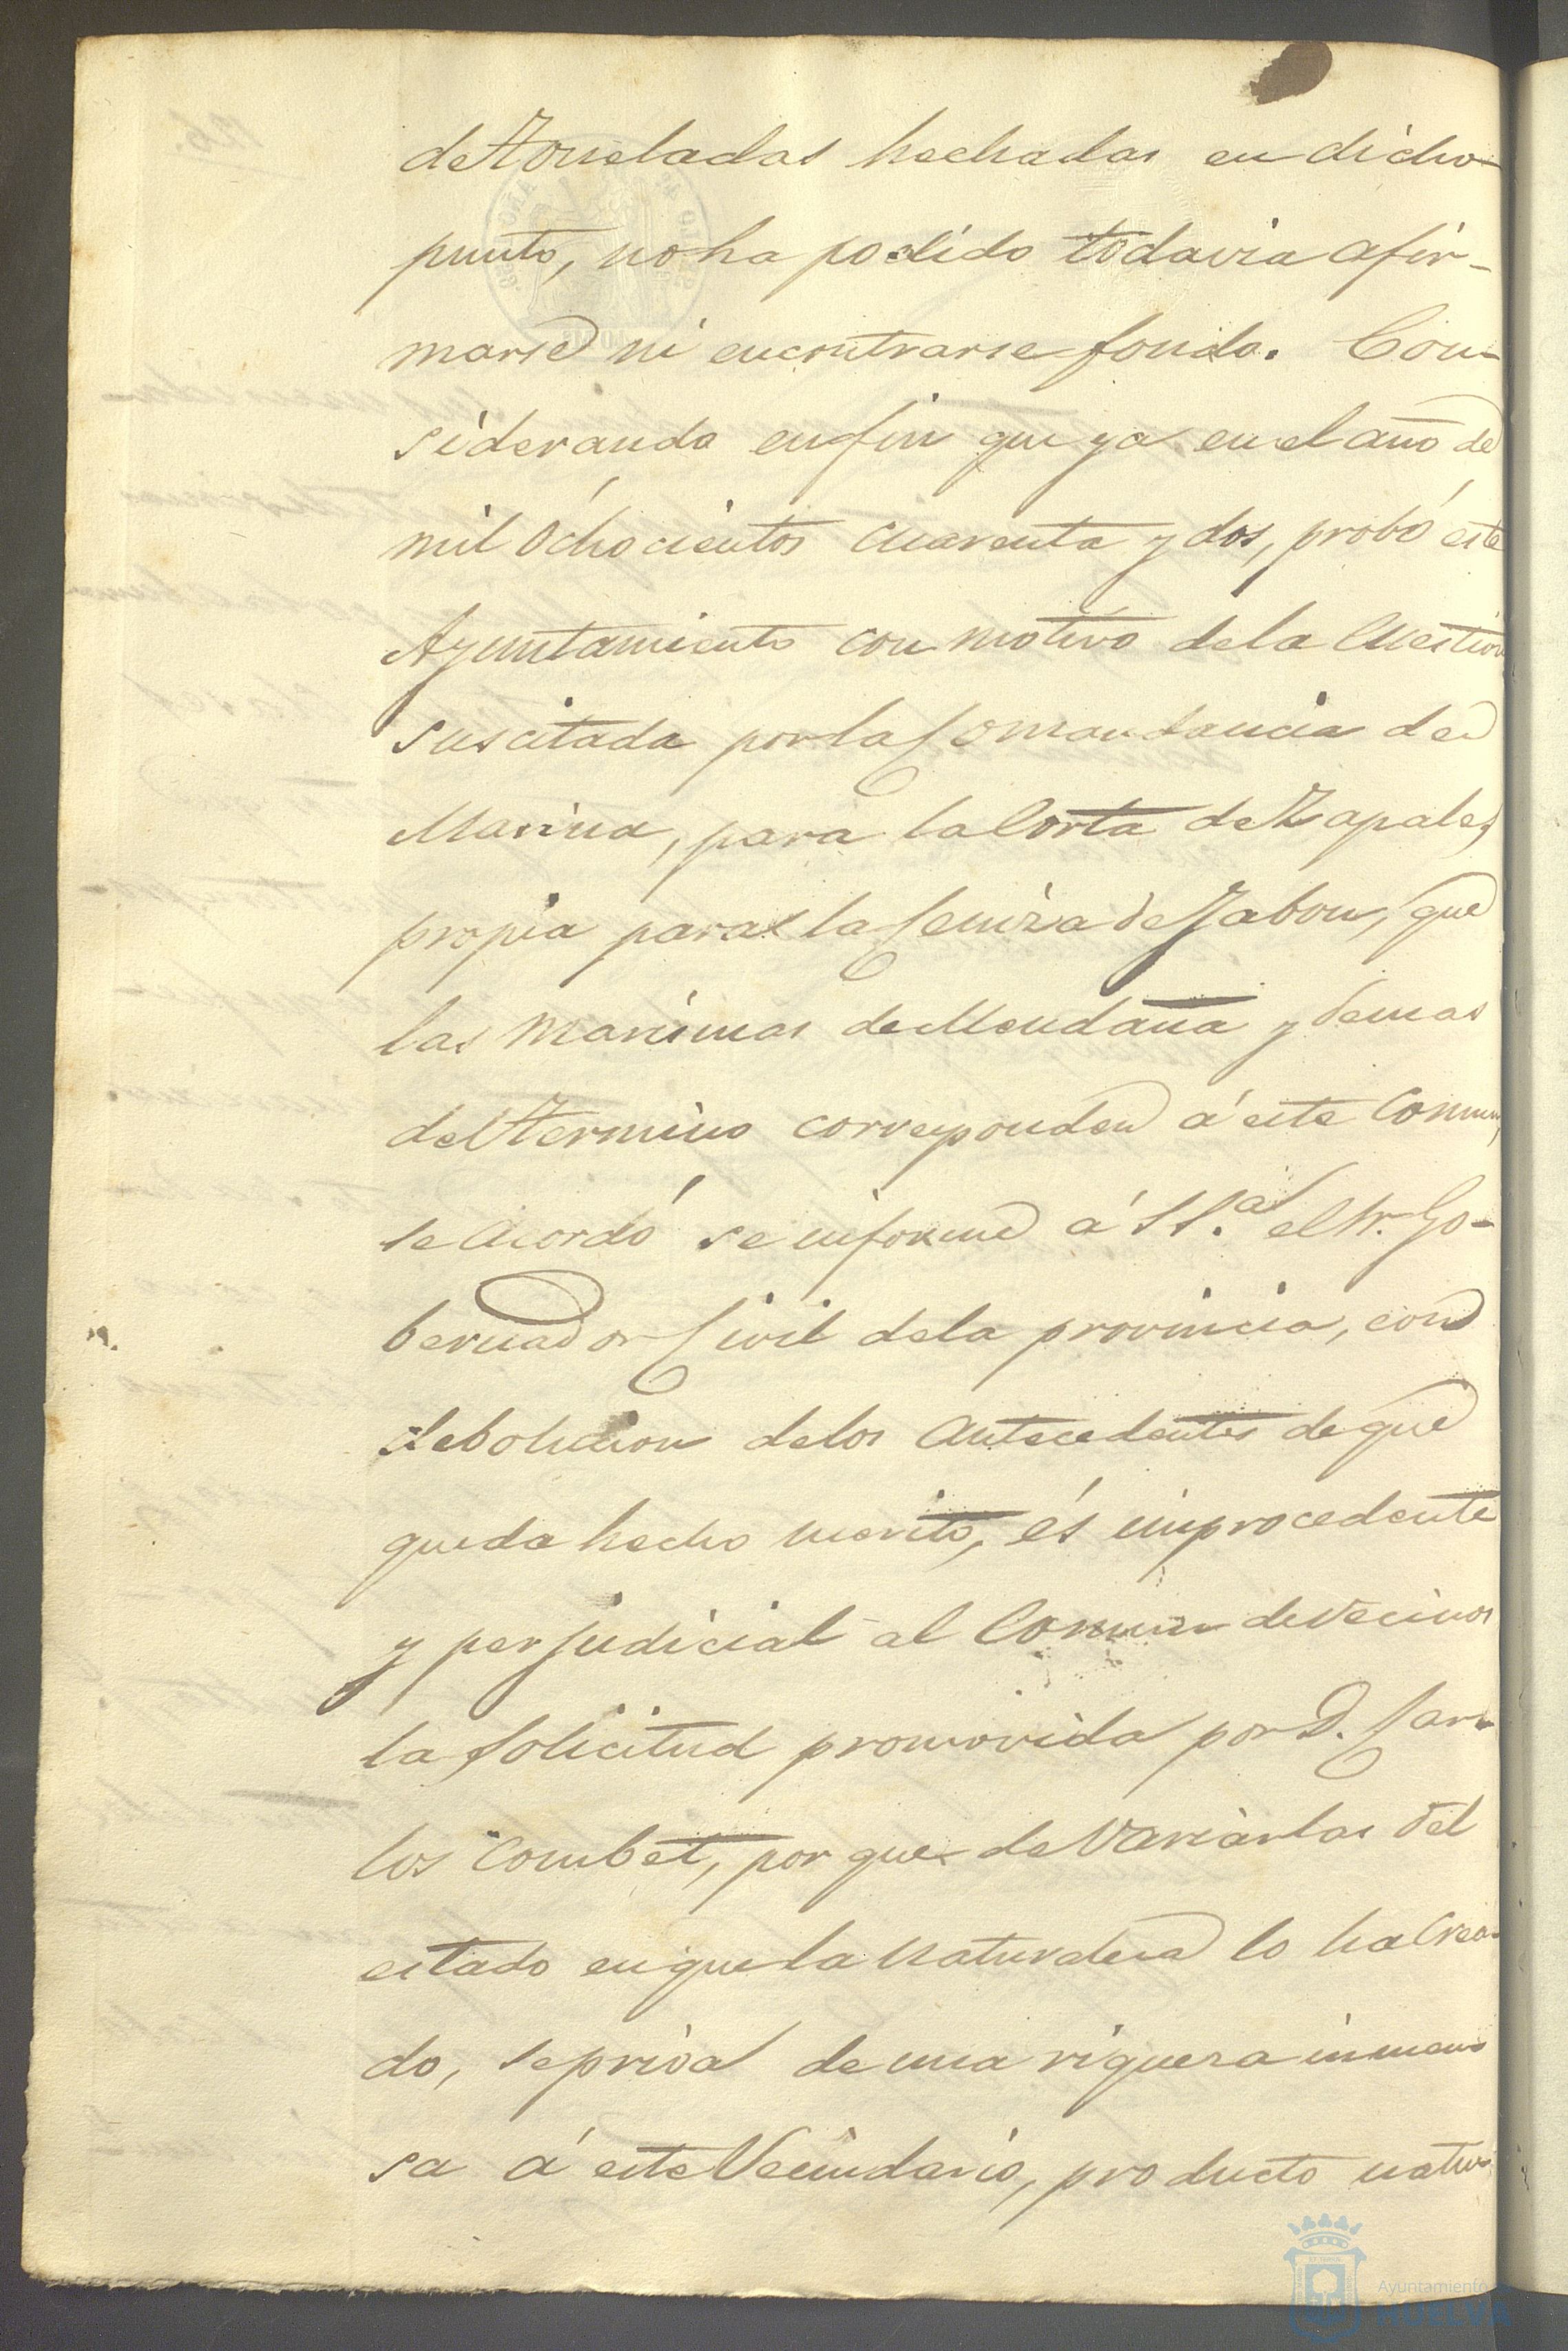 de Toneladas hechadas en dicho
punto, no ha podido todavia afir-
marse ni encontrarse fondo. Con-
siderando en fin que ya en el año de
mil Ochocientos cuarenta y dos, probó este
Ayuntamiento con motivo de la Cuestion
suscitada por la Comandancia de
Marina, para la Corta de Zapales,
propia para la Ceniza de Jabon, que
las Marismas de Mendaña y demas
del Termino corresponden á este Comun,
se Acordó se informe á S S.ª el Sr. Go-
bernador Civil de la provincia, con
debolucion de los Antecedentes de que
queda hecho merito, és improcedente
y perjudicial al Comun de Vecinos
la Solicitud promovida por D. Car-
los Combet, por que de Variarlas del
estado en que la Naturaleza lo ha Crea-
do, se priva de una riqueza inmen-
sa á este Vecindario, producto natu-
Ayuntamiento
HUELVA